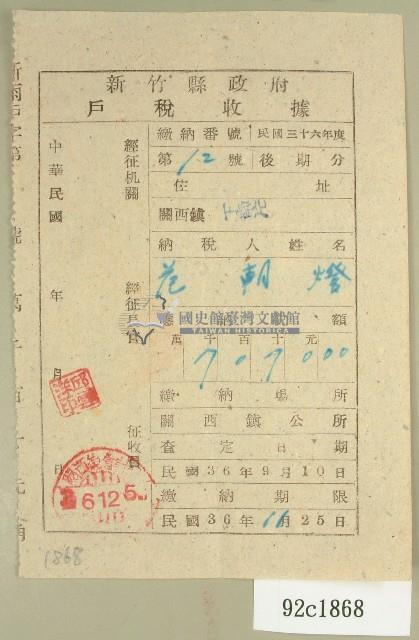 新竹縣政府
戶稅收據
繳納番號 民國三十六年度
第12號後期分
住址
關西鎮
納稅人姓名
范朝燈
應納稅額
萬千百十元
707000
繳納場所
關西鎮公所
查定日期
民國36年9月10日
繳納期限
民國36年11月25日
經征机關
經征長官
征收員
中華民國 年 月 日
國史館臺灣文獻館
TAIWAN HISTORICA
6125
1868
92c1868